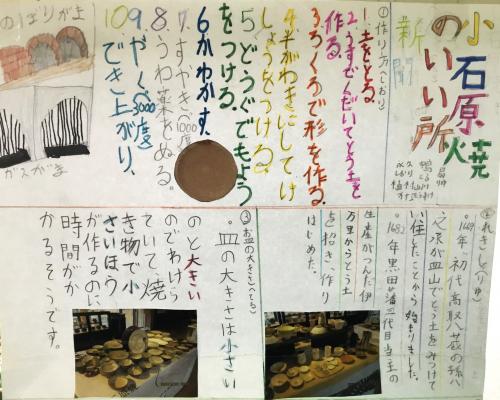 小石原焼
のいい所
新聞
①作り方(しおり)
1.土をとる。
2.うすでくだいてとう土を
作る。
3.ろくろで形を作る。
4.半がわきにしてけ
しょうをつける。
5.どうぐでもよう
をつける。
6.かわかす。
7.すやき(約1000度
8.うわ薬をぬる。
9.やく(約3000度
10.でき上がり。
のぼりがま
ガスがま
②れきし(べにか
1669年、初代高取八蔵の孫八
之丞が皿山でとう土をみつけて
住したことから始まりました。
1682年黒田藩三代目当主の
生産がさかんだった伊
万里からとう工
を招き、作り
はじめた。
③お皿の大きさ(てる)
。皿の大きさは小さい
のと大きい
のでわけら
れていて、焼
き物で小
さいほう
が作るのに
時間がか
かるそうです。